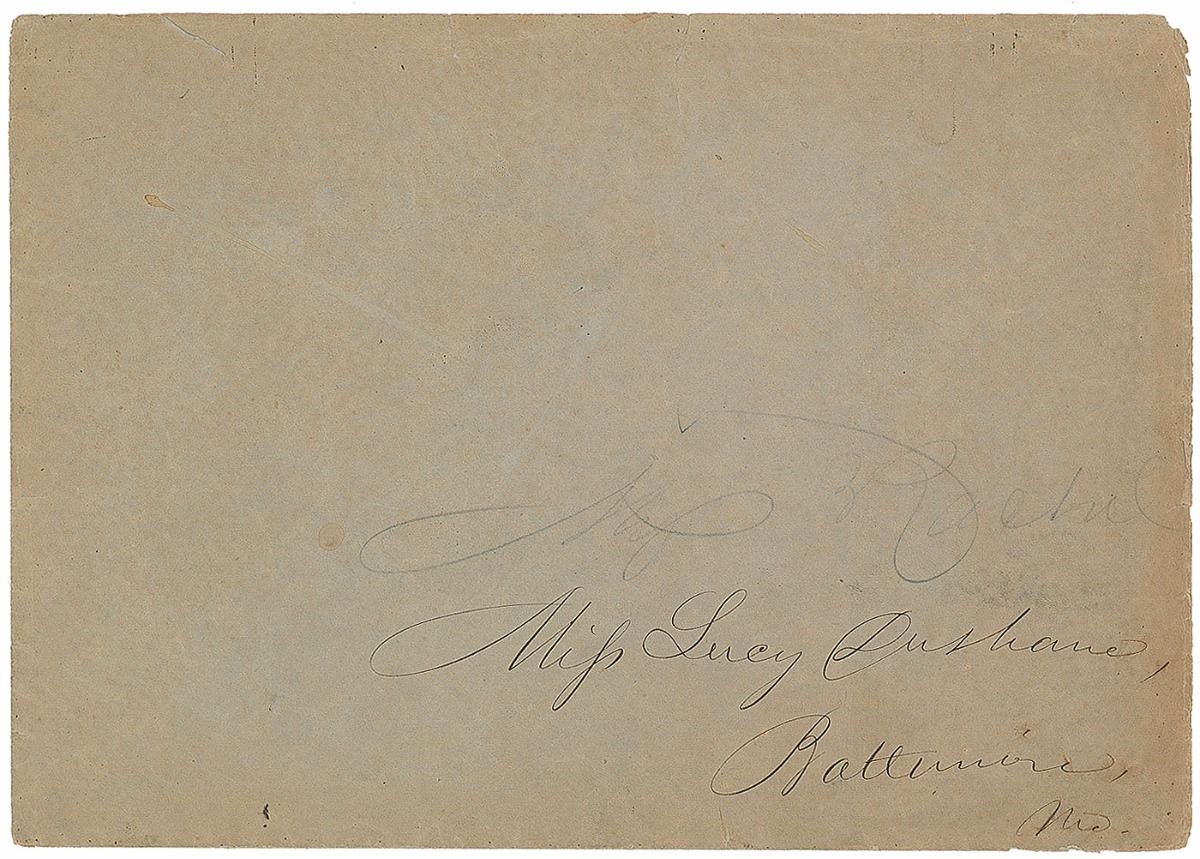 Miss
Miss Lucy Dushane,
Baltimore,
Md.